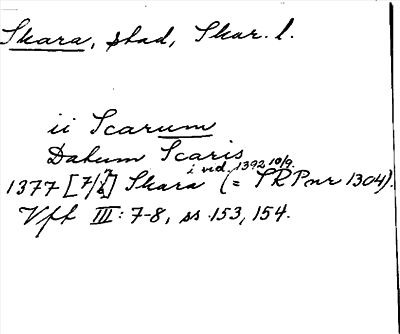 Skara, stad, Skar. l.
ii Scarum
Datum Scaris
i vid. 1392 10/9.
1377 [7/8] Skara (= SRP nr 1304).
Vff III: 7-8, ss 153, 154.